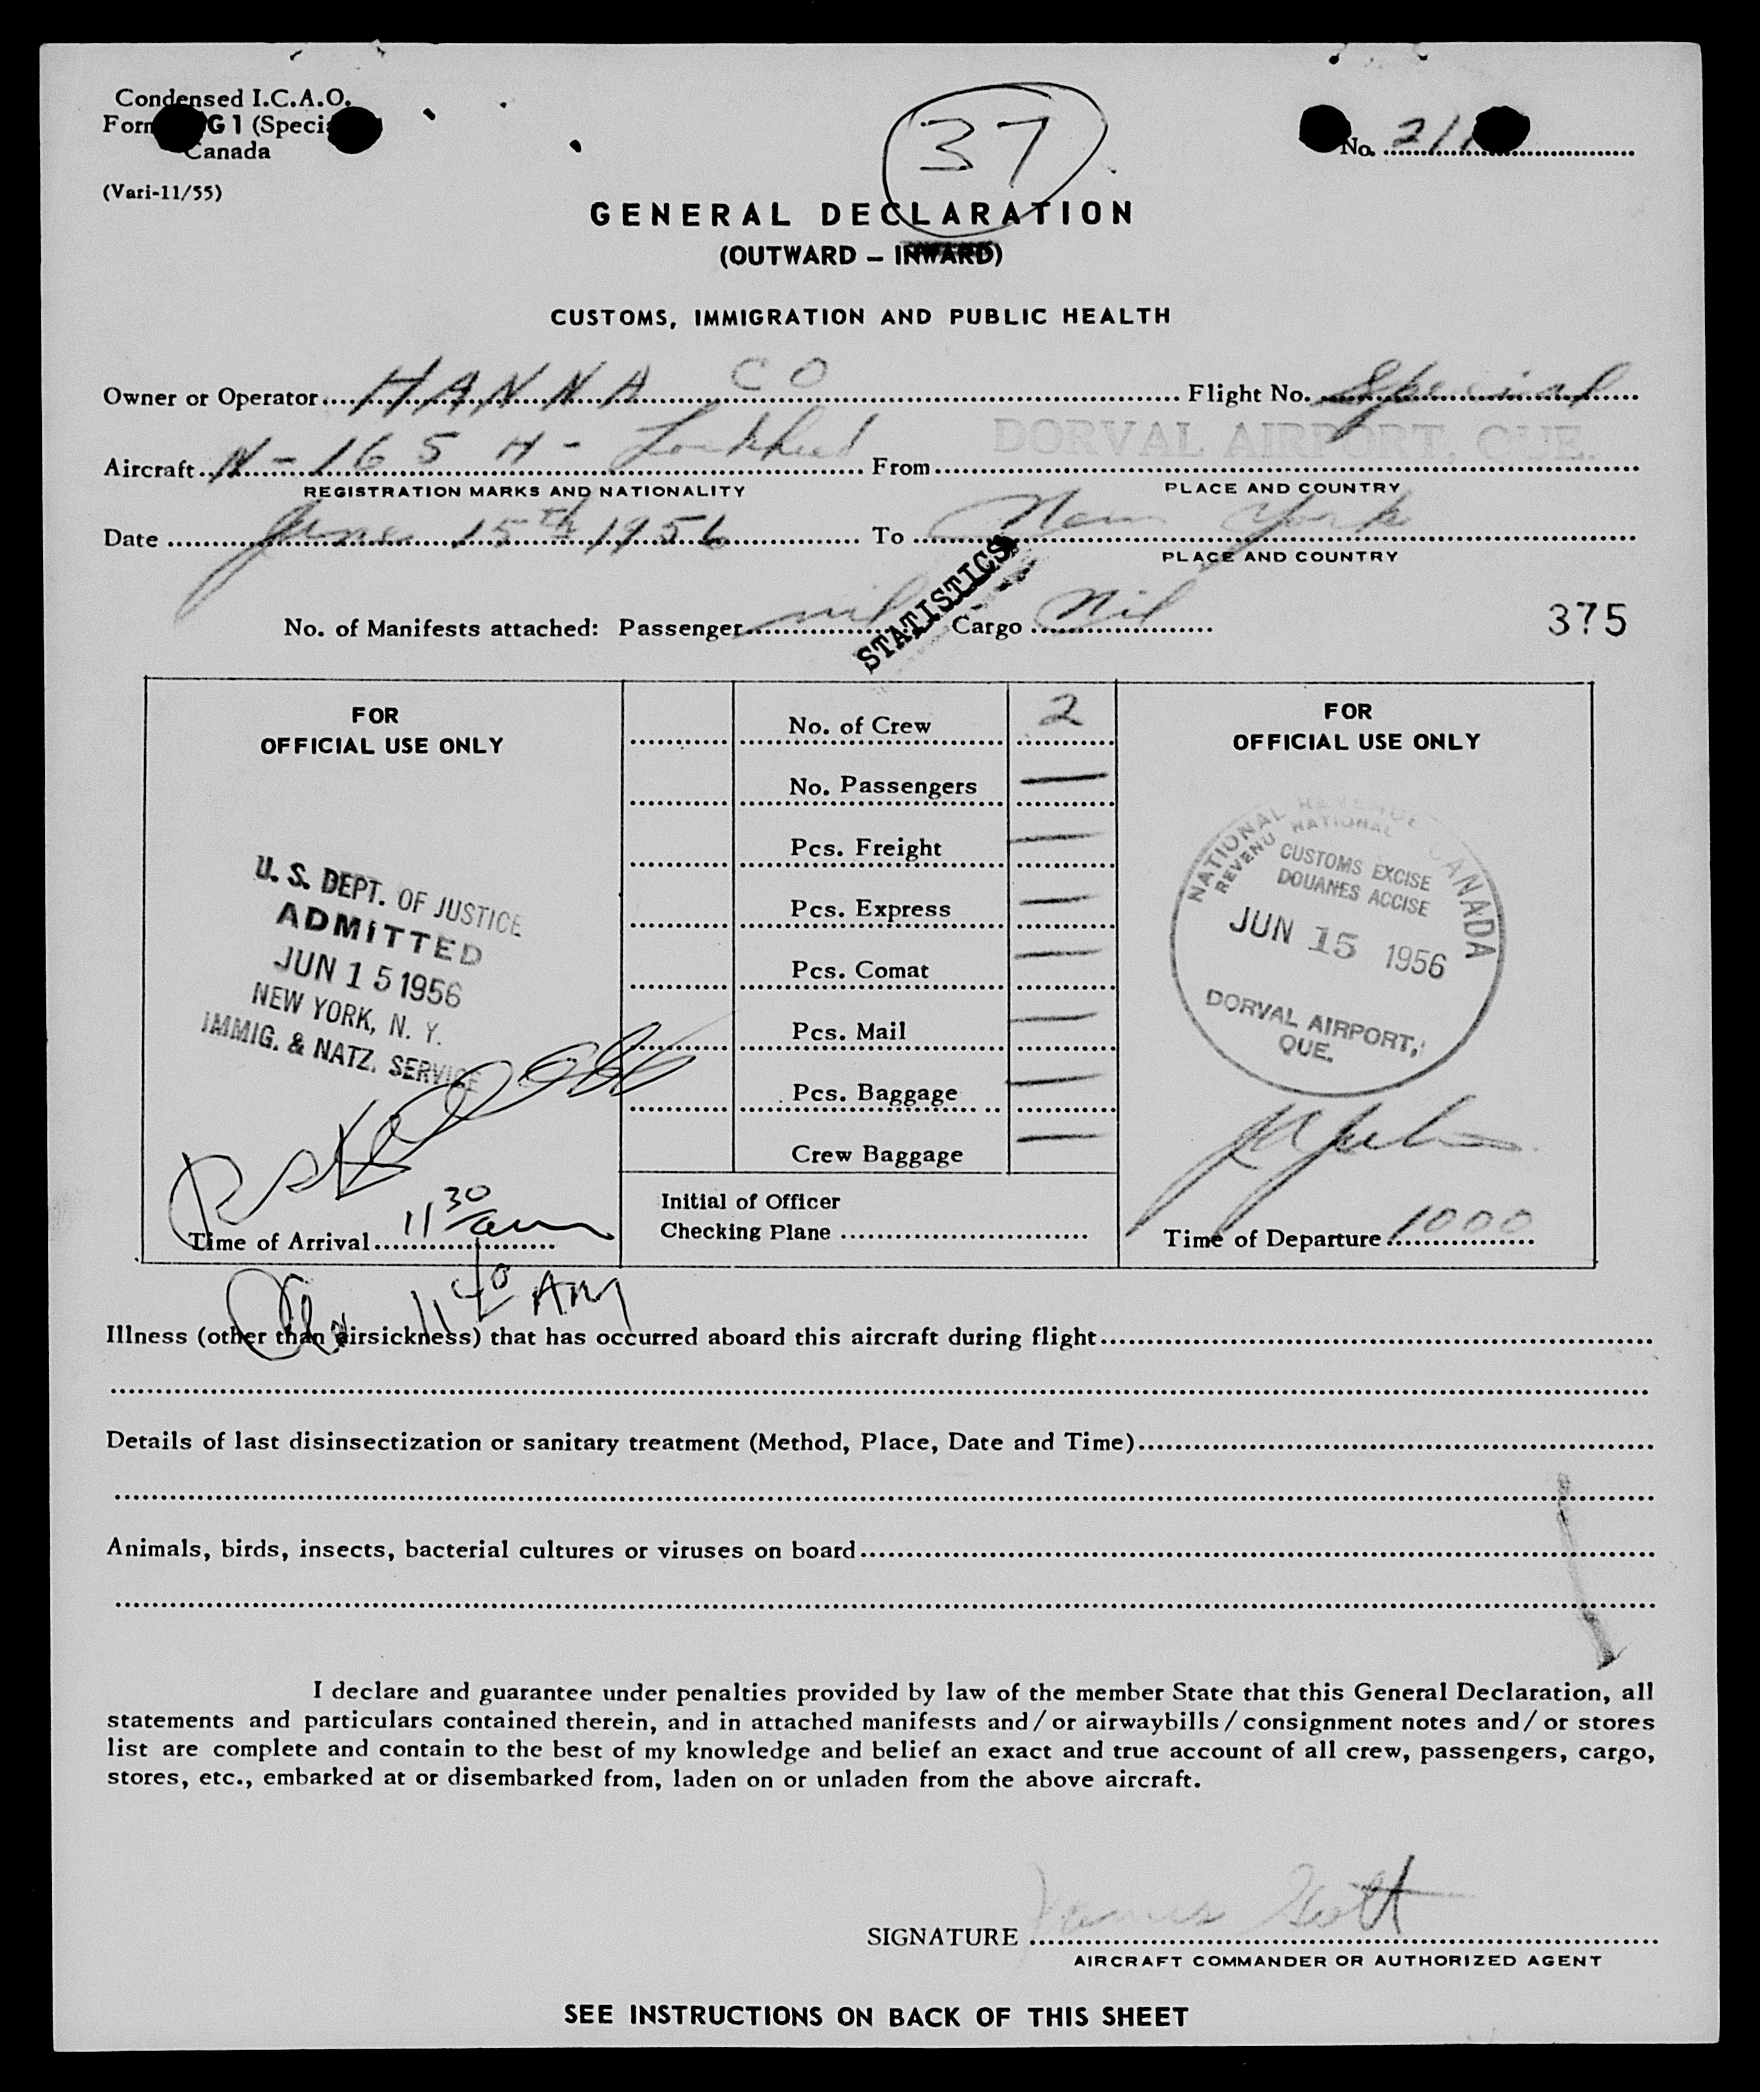 Condensed I.C.A.O.
G 1 (Speci
Canada
(Vari-11/55)
37
No. 21
GENERAL DECLARATION
(OUTWARD – INWARD)
CUSTOMS, IMMIGRATION AND PUBLIC HEALTH
Owner or Operator HANNA CO Flight No. Special
Aircraft N-165H - Lockheed From DORVAL AIRPORT, QUE.
REGISTRATION MARKS AND NATIONALITY PLACE AND COUNTRY
Date June 15th 1956 To New York
PLACE AND COUNTRY
STATISTICS
No. of Manifests attached: Passenger nil Cargo Nil 375
FOR
OFFICIAL USE ONLY
U. S. DEPT. OF JUSTICE
ADMITTED
JUN 15 1956
NEW YORK, N. Y.
IMMIG. & NATZ. SERVICE
Time of Arrival 11 30 am
11 40 AM
No. of Crew 2
No. Passengers —
Pcs. Freight —
Pcs. Express —
Pcs. Comat —
Pcs. Mail —
Pcs. Baggage —
Crew Baggage —
Initial of Officer
Checking Plane
FOR
OFFICIAL USE ONLY
NATIONAL REVENUE CANADA
REVENU NATIONAL
CUSTOMS EXCISE
DOUANES ACCISE
JUN 15 1956
DORVAL AIRPORT,
QUE.
Time of Departure 1000
Illness (other than airsickness) that has occurred aboard this aircraft during flight
Details of last disinsectization or sanitary treatment (Method, Place, Date and Time)
Animals, birds, insects, bacterial cultures or viruses on board
I declare and guarantee under penalties provided by law of the member State that this General Declaration, all
statements and particulars contained therein, and in attached manifests and/or airwaybills/consignment notes and/or stores
list are complete and contain to the best of my knowledge and belief an exact and true account of all crew, passengers, cargo,
stores, etc., embarked at or disembarked from, laden on or unladen from the above aircraft.
SIGNATURE James Scott
AIRCRAFT COMMANDER OR AUTHORIZED AGENT
SEE INSTRUCTIONS ON BACK OF THIS SHEET